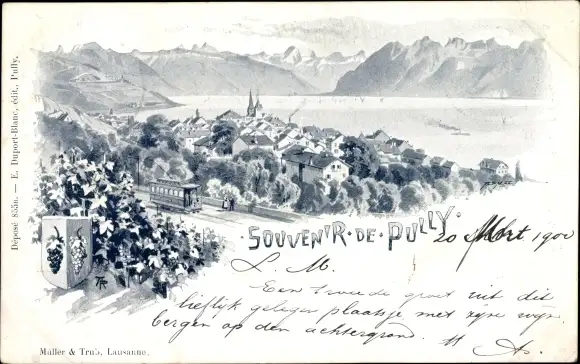 Déposé 855a. — E. Duport-Blanc, édit., Pully.
SOUVENIR·DE·PULLY·
20 Maart 1900
L. M.
Een tweede groet uit dit
lieflijk gelegen plaatsje met zyne wyn
bergen op den achtergrond.
Müller & Trüb, Lausanne.